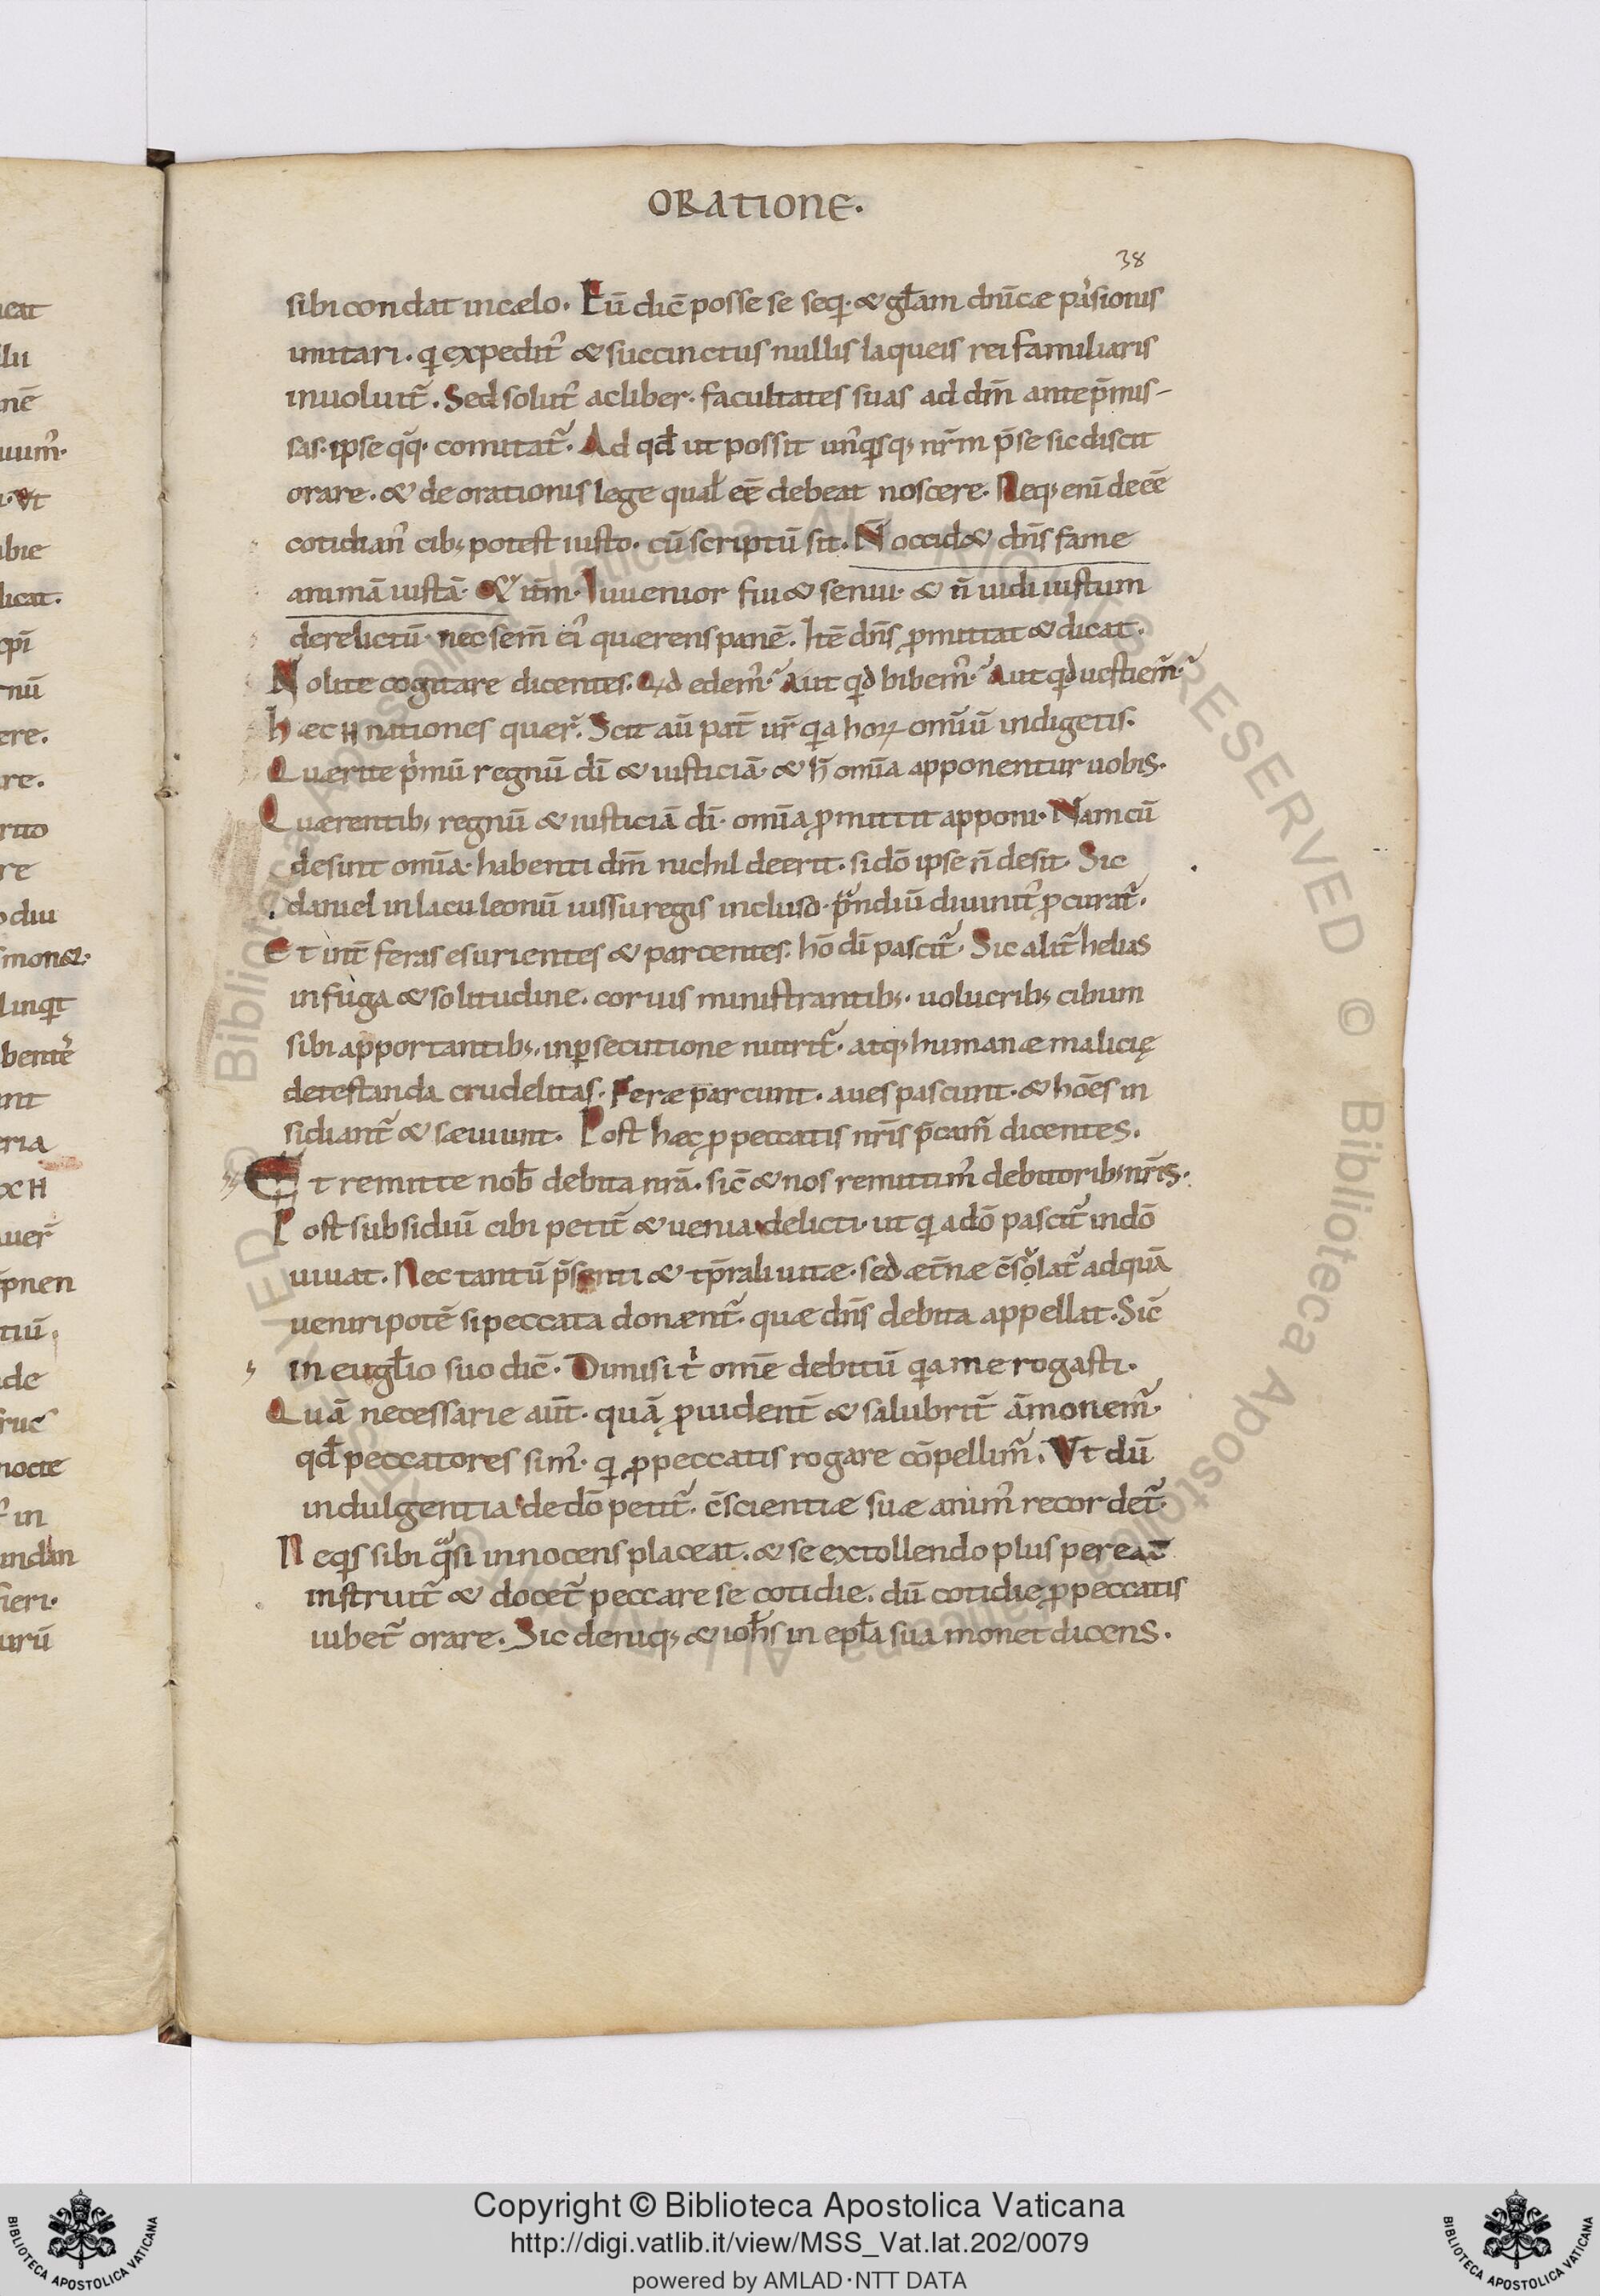 ORATIONE.
38
sibi condat in cælo. Eū dic̄ posse se seq. & gl̄am dn̄icæ passionis
imitari. qi expeditꝰ & succinctus nullis laqueis rei familiaris
inuoluit᷑. Sed solutꝰ ac liber. facultates suas ad dm̄ ante p̄mis-
sas. ipse qq̄. comitat᷑. Ad qd̄ ut possit unꝰqisq; nr̄m p̄se sic discit
orare. & de orationis lege qual̄ eē debeat noscere. Neq; eni deeē
cotidianꝰ cib; potest iusto. cū scriptū sit. N̄ occid& dn̄s fame
animā iustā. Et itm̄. Iuuenior fui & senui. & n̄ uidi iustum
derelictū. nec sem̄ eiꝰ quærens panē. Itē dn̄s ꝓmittat & dicat.
Nolite cogitare dicentes. Qid edemꝰ. Aut qid bibemꝰ. Aut qid uestiem᷑.
hæc .n. nationes quer᷑. Scit aū pat̄ ur̄ qia hoꝝ omīū indigetis.
Quærite pimū regnū dī & iusticiā. & h̄ omīa apponentur uobis.
Quærentib; regnū & iusticiā dī. omīa ꝓmittit apponi. Nam cū
desint omīa. habenti dm̄ nichil deerit. si dō ipse n̄ desit. Sic
daniel in lacu leonū iussu regis incluso. prandiū diuinitꝰ ꝓcurat᷑.
Et int̄ feras esurientes & parcentes. hō dī pascit᷑. Sic alit᷑ helias
in fuga & solitudine. coruis ministrantib;. uolucrib; cibum
sibi apportantib;. in ꝑsecutione nutrit᷑. atq; humanæ malicię
detestanda crudelitas. Feræ parcunt. aues pascunt. & hōes in
sidiant᷑ & sæuiunt. Post hæc ꝓ peccatis nr̄is p̄cam᷑ dicentes.
Et remitte nob̄ debita nr̄a. sic̄ & nos remittimꝰ debitorib; nr̄is.
Post subsidiū cibi petit᷑ & uenia delicti. ut qi a dō pascit᷑ in dō
uiuat. Nec tantū p̄senti & tp̄rali uitæ. sed æt̄næ c̄solat᷑ ad quā
ueniri potē si peccata donænt᷑. quæ dn̄s debita appellat. Sic̄
in eugl̄io suo dic̄. Dimisi ti omē debitū qia me rogasti.
Quā necessarie aūt. quā ꝓuident̄ & salubrit̄ āmonem᷑.
qd̄ peccatores simꝰ. qi ꝓ peccatis rogare cōpellim᷑. Ut dū
indulgentia de dō petit᷑. c̄scientiæ suæ animꝰ recordet᷑.
Neqis sibi qasi innocens placeat. & se extollendo plus pereat
instruit᷑ & docet᷑ peccare se cotidie. dū cotidie ꝓ peccatis
iubet᷑ orare. Sic deniq; & ioh̄s in epl̄a sua monet dicens.
Copyright © Biblioteca Apostolica Vaticana
http://digi.vatlib.it/view/MSS_Vat.lat.202/0079
powered by AMLAD·NTT DATA